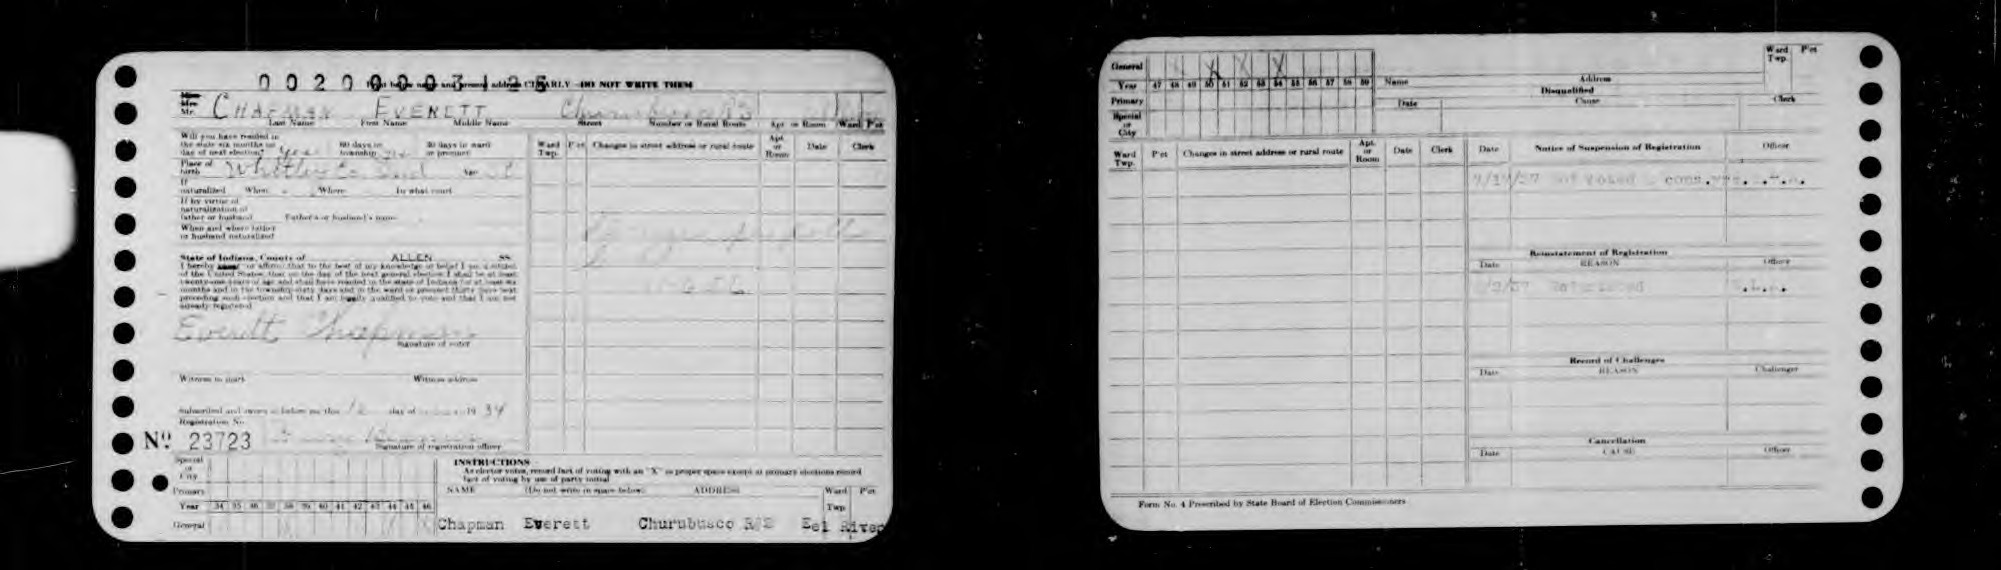 002000031
name and present address CLEARLY—DO NOT WRITE THEM
Mr. CHAPMAN EVERETT Churubusco
Last Name First Name Middle Name Street Number or Rural Route Apt. or Room Ward P'ct
Will you have resided in
the state six months on 60 days in 30 days in ward
day of next election? yes township or precinct
Place of
birth Whitley Co Ind Age
If
naturalized When Where In what court
If by virtue of
naturalization of
father or husband Father's or husband's name
When and where father
or husband naturalized
State of Indiana, County of ALLEN SS
I hereby swear or affirm that to the best of my knowledge or belief I am a citizen
of the United States, that on the day of the next general election I shall be at least
twenty-one years of age and shall have resided in the state of Indiana for at least six
months and in the township sixty days and in the ward or precinct thirty days next
preceding such election and that I am legally qualified to vote and that I am not
already registered
Everett Chapman
Signature of voter
Witness to mark Witness address
Subscribed and sworn to before me this 12 day of 19 34
Registration No.
Nº 23723
Signature of registration officer
Special
or
City
Primary
Year 34 35 36 37 38 39 40 41 42 43 44 45 46
General
Ward Twp. P'ct Changes in street address or rural route Apt. or Room Date Clerk
INSTRUCTIONS
As elector votes, record fact of voting with an "X" in proper space except at primary elections record
fact of voting by use of party initial
NAME (Do not write in space below) ADDRESS Ward Twp P'ct
Chapman Everett Churubusco Eel River
General X X X
Year 47 48 49 50 51 52 53 54 55 56 57 58 59
Primary
Special
or
City
Name Address Ward Twp. P'ct
Disqualified
Date Cause Clerk
Ward Twp. P'ct Changes in street address or rural route Apt. or Room Date Clerk
Date Notice of Suspension of Registration Officer
Reinstatement of Registration
Date REASON Officer
Record of Challenges
Date REASON Challenger
Cancellation
Date CAUSE Officer
Form No. 4 Prescribed by State Board of Election Commissioners